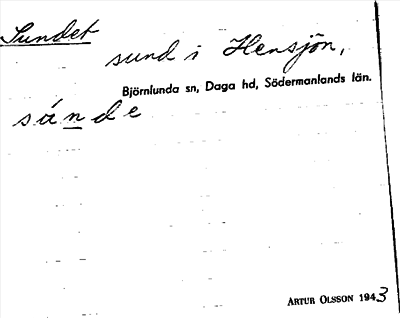 Sundet
sund i Hensjön,
Björnlunda sn, Daga hd, Södermanlands län.
sánde
ARTUR OLSSON 1943